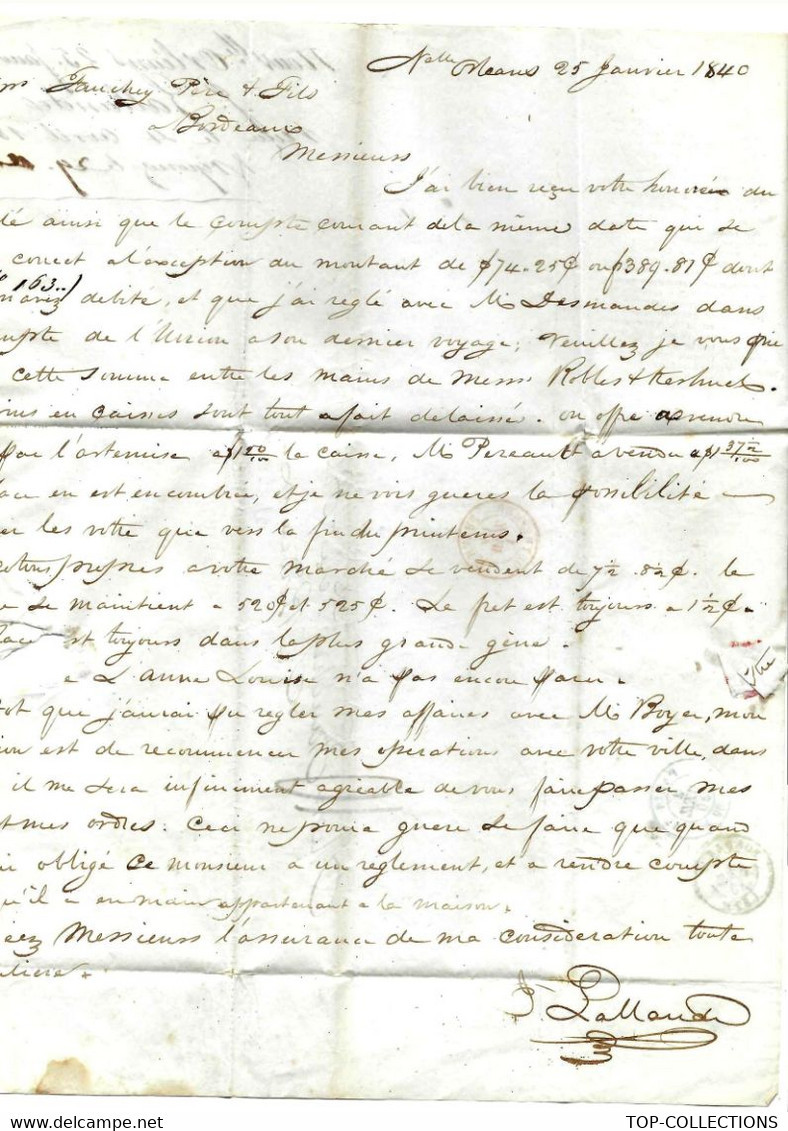 Nlle Orleans 25 Janvier 1840
Fauchey Père & Fils
Bordeaux
Messieurs
J'ai bien reçu votre honorée du
lé ainsi que le Compte courant dela même date qui se
correct a l'exception du montant de $74.25¢ ou f389.81¢ dont
163..)
m'avez debité, et que j'ai reglé avec M. Desmandes dans
mpte de l'Union a son dernier voyage; Veuillez je vous prie
cette somme entre les mains de Messrs Robles &
ins en caisses sont tout a fait delaissé. on offre a vendre
par l'artemise a $1 20/100 la caisse, M. Pereault a vendu a $1 37½/100
lace en est encombrée, et je ne vois gueres la possibilité
er les votre que vers la fin du printems.
cotons propres a votre marché se vendent de 7½ . 8½¢. le
e se maintient a 520¢ et 525¢. Le fret est toujours a 1½¢.
lace est toujours dans la plus grande gène.
L'Anne Louise n'a pas encore paru.
tot que j'aurai pu regler mes affaires avec M. Boyer, mon
ion est de recommencer mes operations avec votre ville, dans
il me sera infiniment agréable de vous faire passer mes
t mes ordres. Ceci ne pourra guere se faire que quand
obligé ce monsieur a un reglement, et a rendre compte
qu'il a en main appartenant a la maison.
éez Messieurs l'assurance de ma consideration toute
uliere.
TOP-COLLECTIONS